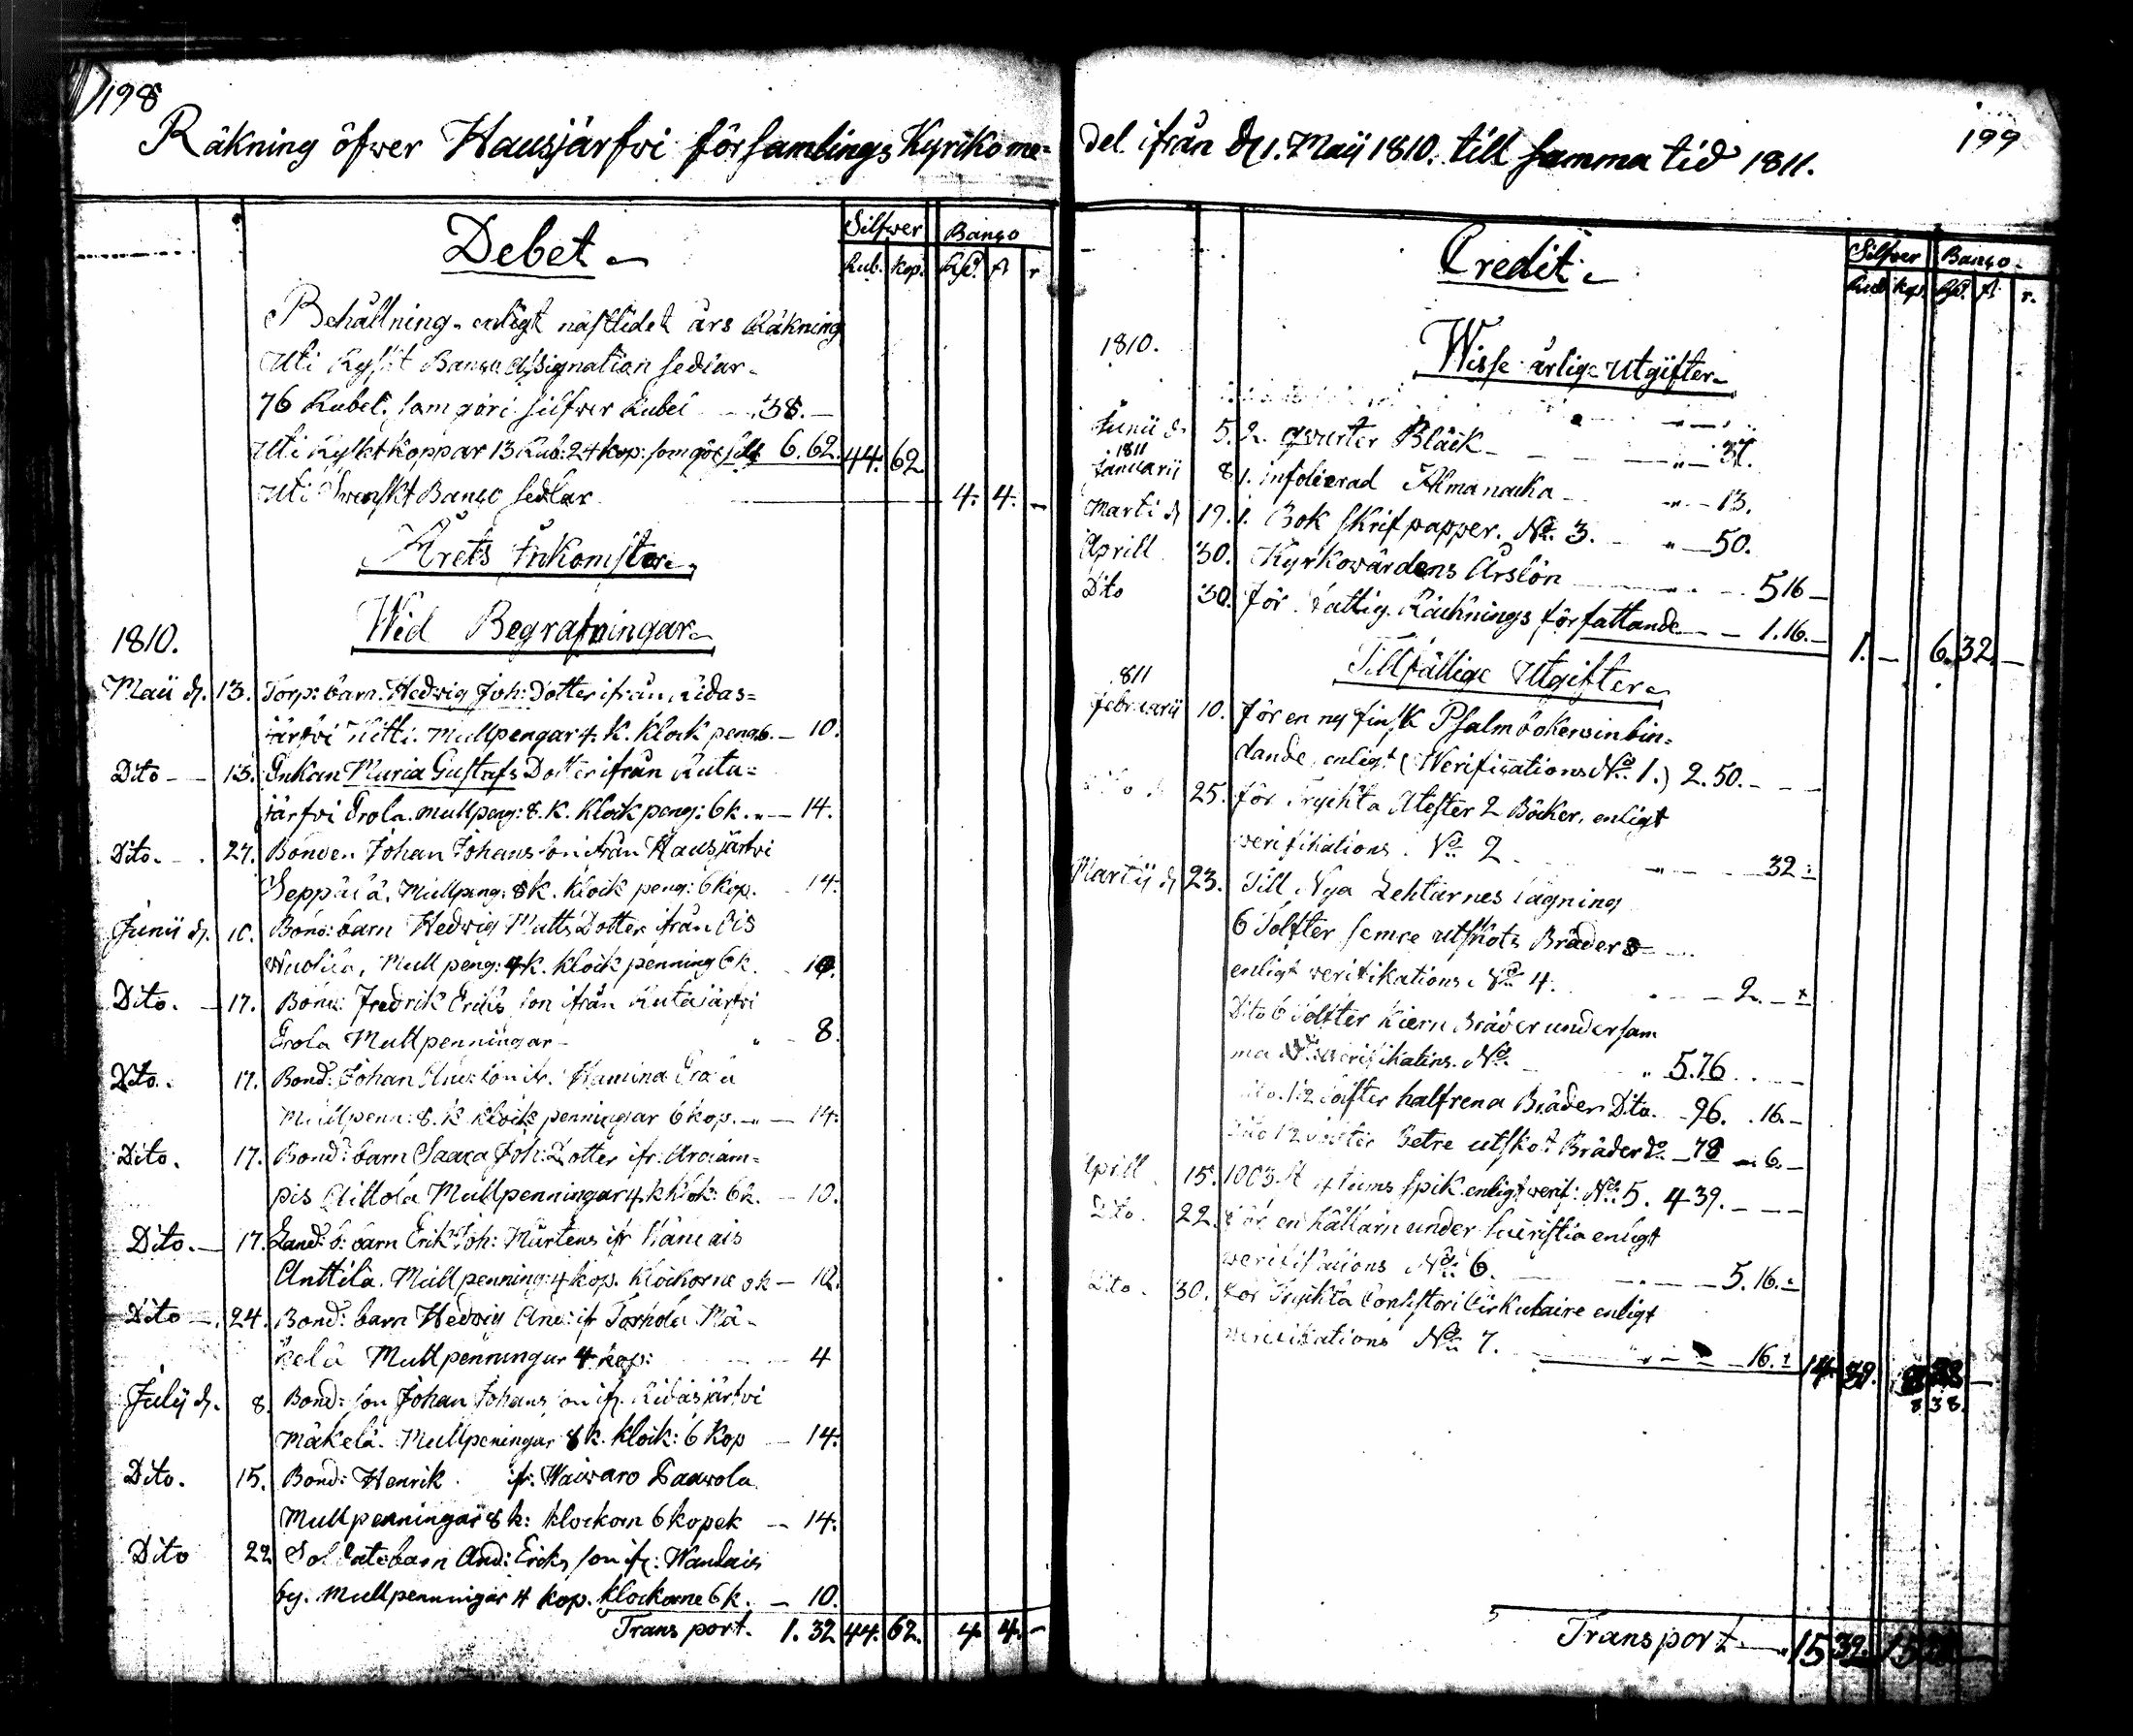 198
Räkning öfwer Hausjärfwi församlings Kyrkome=
Debet
Silfwer Banco
Rub. Kop. Rd. ß r
Behållning enligt nästlidet års Räkning
Uti Ryskt Banco Assignation sedlar
76 Rubel, som göra silfwer Rubel 38.
Uti Ryskt Koppar 13 Rub: 24 kop: som gör silf 6.62. 44. 62
Uti Swenskt Banco sedlar 4. 4. —
Årets Inkomster
Wid Begrafningar
1810.
Maii d. 13. Torp: barn Hedwig Joh: Dotter ifrån Ridas=
järfwi Mullpengar 4. k. Klock peng 6. — 10.
Dito 13. Enkan Maria Gustafs Dotter ifrån Ruta=
järfwi Erola. mullpeng: 8. k. Klock peng: 6 k. — 14.
Dito. 27. Bonden Johan Johansson ifrån Hausjärfwi
Seppälä. Mullpeng: 8 k. klock peng: 6 kop. 14.
Junii d. 10. Bond: barn Hedwig Matts Dotter ifrån
Mull peng: 4 k. klock penning 6 k. 10.
Dito. 17. Bond: Fredrik Ericsson ifrån Rutajärfwi
Erola Mullpenningar 8.
Dito. 17. Bond: Johan
Mullpenn: 8. k klock penningar 6 kop. — 14.
Dito. 17. Bond: barn Saara Joh: Dotter ifr:
pis Mullpenningar 4 k klok: 6 k. — 10.
Dito. 17. barn Erik Joh: Mårtens ifr
Anttila. Mullpenning: 4 kop. klockorne 6 k — 10.
Dito 24. Bond: barn Hedwig And: ifr Torhola Mä-
kelä Mullpenningar 4 kop: 4
Julij d. 8. Bond: son Johan Johansson ifr. Ridasjärfwi
Mäkelä. Mullpeningar 8 k. klock: 6 Kop — 14.
Dito. 15. Bond: Henrik ifr: Waiwaro Paawola
Mullpenningar 8 k: klockorn 6 kopek — 14.
Dito 22 Soldatebarn And: Ericsson ifr: Wandais
by. Mullpenningar 4 kop. klockorne 6 k. — 10.
Transport. 1. 32 44. 62. 4 4. —
199
del ifrån d. 1. Maij 1810. till samma tid 1811.
Credit
Silfwer Banco
Rub kop. Rd. ß. r.
1810.
Wisse årlige Utgifter
Junii d. 5. 2. qwarter Bläck 37.
1811
Januarii 8 1. infolierad Almanacka 13.
Marti d 19. 1. Bok skrifpapper. No. 3. 50.
Aprill 30. Kyrkowärdens Årslön 5 16 —
Dito 30. för Räknings författande 1. 16. — 1. — 6. 32. —
Tillfällige Utgifter
1811
februarii 10. för en ny finsk Psalmboks inbin=
dande, enligt (Werifications No. 1.) 2. 50. — —
25. för Tryckta Atester 2 Böcker, enligt
verifikations No. 2 32 :
Martij d 23. Till Nya Lehtarnes lagning
6 Tolfter semre utskots Bräder
enligt verifikations No. 4. 2. —
Dito 6 Tolfter Kiern Bräder under sam
ma verifikations. No. 5. 76
12 tolfter halfrena Bräder Dito. 96. 16. —
Dito 12 Betre utskot Bräder do 78 6. —
Aprill 15. 1003 st 4 tums spik enligt verif: No. 5. 4 39. — —
Dito. 22. för en Källarn under enligt
verifikations No. 6. 5. 16.
Dito. 30. för Tryckta Consistori Cirkulaire enligt
verifikations No. 7. 16. 14 39.
8 38.
Transport 15 39.